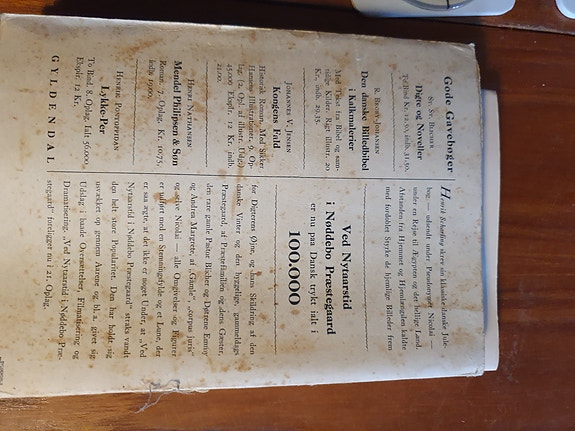 Gode Gavebøger
St. St. Blicher
Digte og Noveller
To Bind Kr. 12,50, indb. 31,50.
R. Broby-Johansen
Den danske Billedbibel
i Kalkmalerier
Med Tekst fra Bibel og sam-
tidige Kilder. Rigt illustr. 20
Kr., indb. 29.35.
Johannes V. Jensen
Kongens Fald
Historisk Roman. Med Sikker
Hansens Illustrationer. 9. Op-
lag. (2. Opl. af illustr. Udg.)
45.000 Eksplr. 12 Kr., indb.
21.00.
Henri Nathansen
Mendel Philipsen & Søn
Roman. 7. Oplag. Kr. 10,75,
indb.
Henrik Pontoppidan
Lykke-Per
To Bind. 8. Oplag. Ialt 56.000
Eksplr. 12 Kr.
GYLDENDAL
Henrik Scharling skrev sin klassiske danske Jule-
bog — udsendt under Pseudonymet Nicolai —
under en Rejse til Ægypten og det hellige Land.
Afstanden fra Hjemmet og Hjemlængslen kaldte
med fordoblet Styrke de hjemlige Billeder frem
Ved Nytaarstid
i Nøddebo Præstegaard
er nu paa Dansk trykt ialt i
100.000
for Digterens Øjne, og hans Skildring af den
danske Vinter og den hyggelige, gammeldags
Præstegaard, af Præstefamilien og dens Gæster,
den rare gamle Pastor Blicher og Døtrene Emmy
og Andrea Margrethe, af „Gamle“, „corpus juris“
og selve Nicolai — alle Omgivelser og Figurer
er udført med en Stemningsfylde og et Lune, der
er saa ægte, at det ikke er noget Under, at „Ved
Nytaarstid i Nøddebo Præstegaard“ straks vandt
den helt store Popularitet. Den har holdt sig
usvækket op gennem Aarene og bl. a. givet sig
Udslag i baade Oversættelser, Filmatisering og
Dramatisering. „Ved Nytaarstid i Nøddebo Præ-
stegaard“ foreligger nu i 21. Oplag.